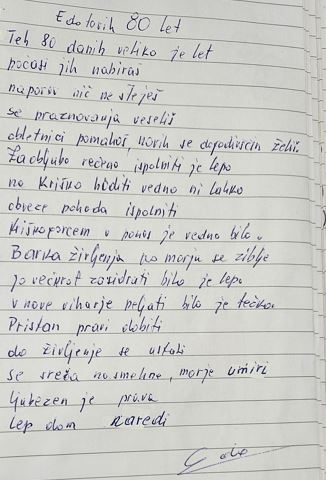 Edo tovih 80 let
Teh 80 danih veliko je let
počasi jih nabiraš
naporov nič ne šteješ
se praznovanja veseliš
obletnici pomahaš, novih se dogodivščin želiš.
Za obljubo rečeno izpolniti je lepo
na Kriško hoditi vedno ni lahko
obveze pohoda izpolniti
v ponos je vedno bilo.
Barka življenja po morju se ziblje
jo večkrat zasidrati bilo je lepo
v nove viharje peljati bilo je težko.
Pristan pravi dobiti
da življenje se ustali
se sreča nasmehne, morje umiri
ljubezen je prava
lep dom naredi